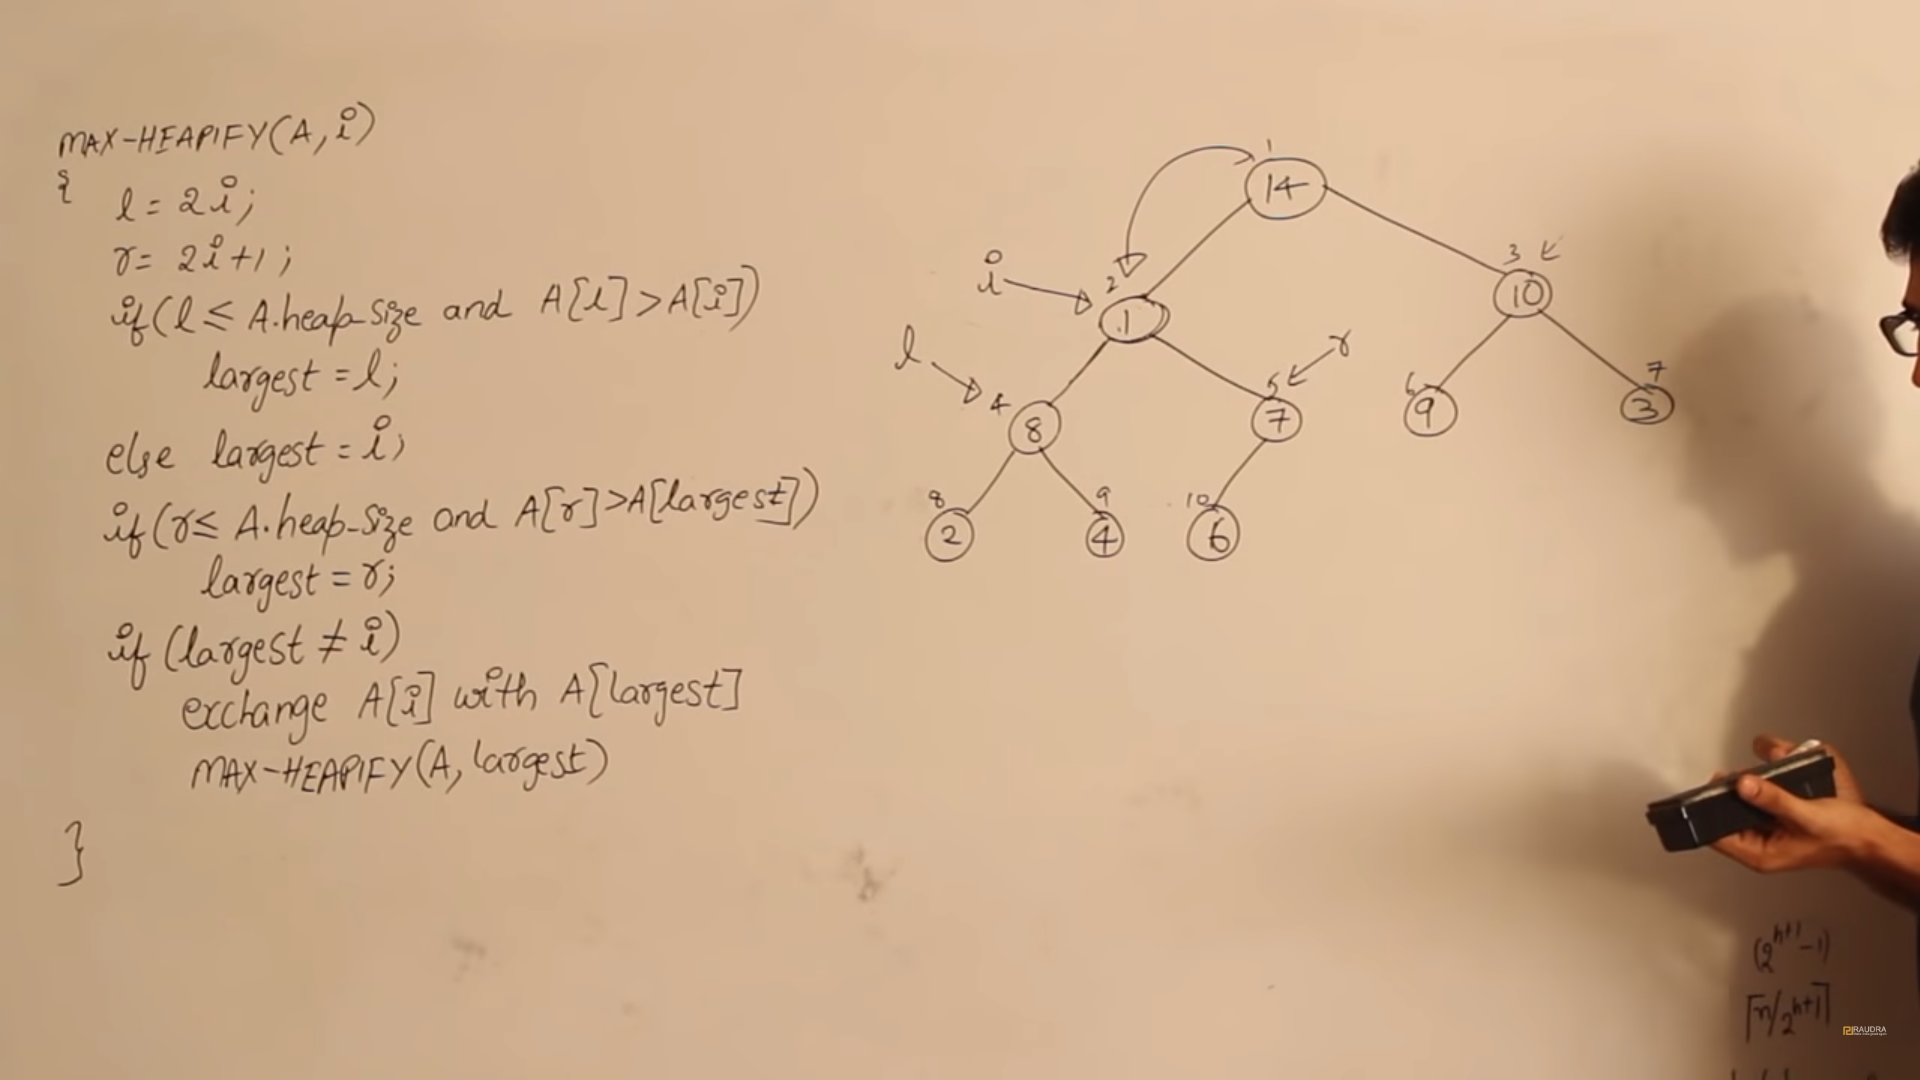 MAX-HEAPIFY(A, i)
{
l = 2i;
r = 2i+1;
if(l ≤ A.heap-size and A[l] > A[i])
largest = l;
else largest = i;
if(r ≤ A.heap-size and A[r] > A[largest])
largest = r;
if (largest ≠ i)
exchange A[i] with A[largest]
MAX-HEAPIFY(A, largest)
}
1
14
i
2
1
3
10
l
4
8
r
5
7
6
9
7
3
8
2
9
4
10
6
(2^{h+1} - 1)
⌈n/2^{h+1}⌉
RAUDRA